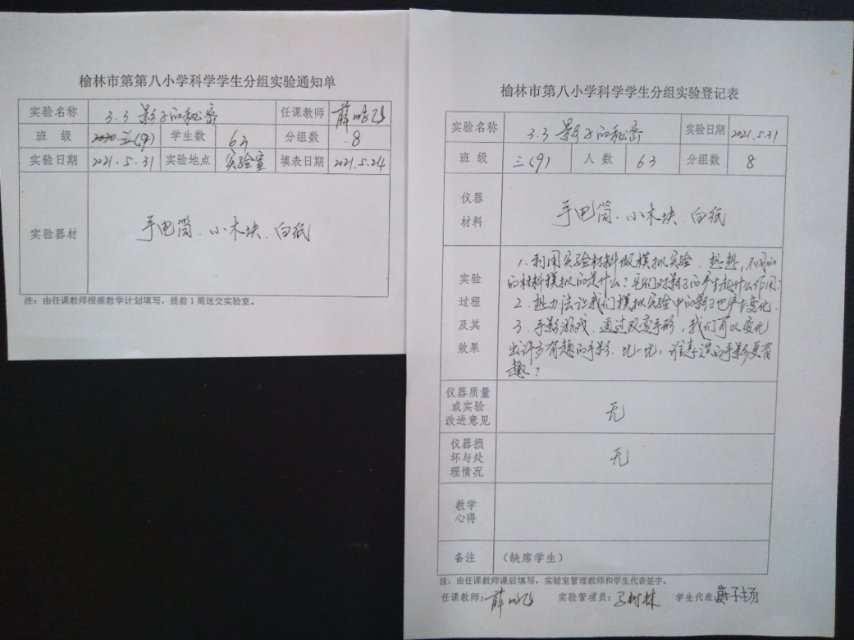 榆林市第第八小学科学学生分组实验通知单
实验名称 3.3 影子的秘密 任课教师 薛
班 级 三(9) 学生数 63 分组数 8
实验日期 2021.5.31 实验地点 实验室 填表日期 2021.5.24
实验器材 手电筒、小木块、白纸
注：由任课教师根据教学计划填写，提前1周送交实验室。
榆林市第八小学科学学生分组实验登记表
实验名称 3.3 影子的秘密 实验日期 2021.5.31
班 级 三(9) 人 数 63 分组数 8
仪器材料 手电筒、小木块、白纸
实验过程及其效果
1.利用实验材料做模拟实验，想想，不同的
的材料模拟的是什么？它们对影子的产生起什么作用？
2.想办法让我们模拟实验中的影子也产生变化.
3.手影游戏.通过改变手形，我们可以变化
出许多有趣的手影.比一比，谁表演的手影更有
趣？
仪器质量或实验改进意见 无
仪器损坏与处理情况 无
教学心得
备注 (缺席学生)
注：由任课教师课后填写，实验室管理教师和学生代表签字。
任课教师：薛 实验管理员： 树林 学生代表：